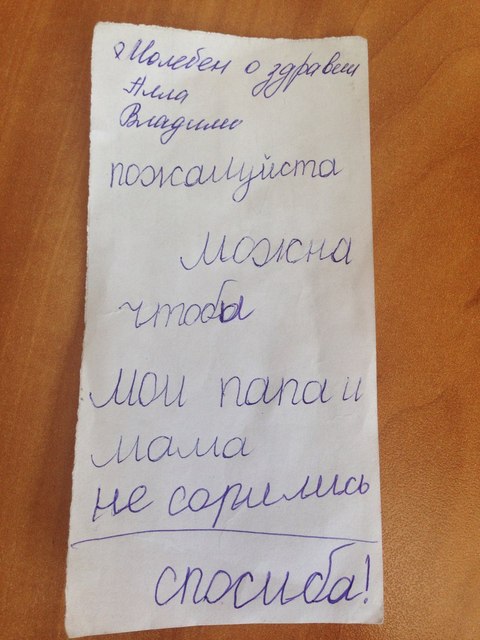 Молебен о здравии
Алла
Владимир
пожалуйста
можна
чтобы
мои папа и
мама
не сорились
спосиба!